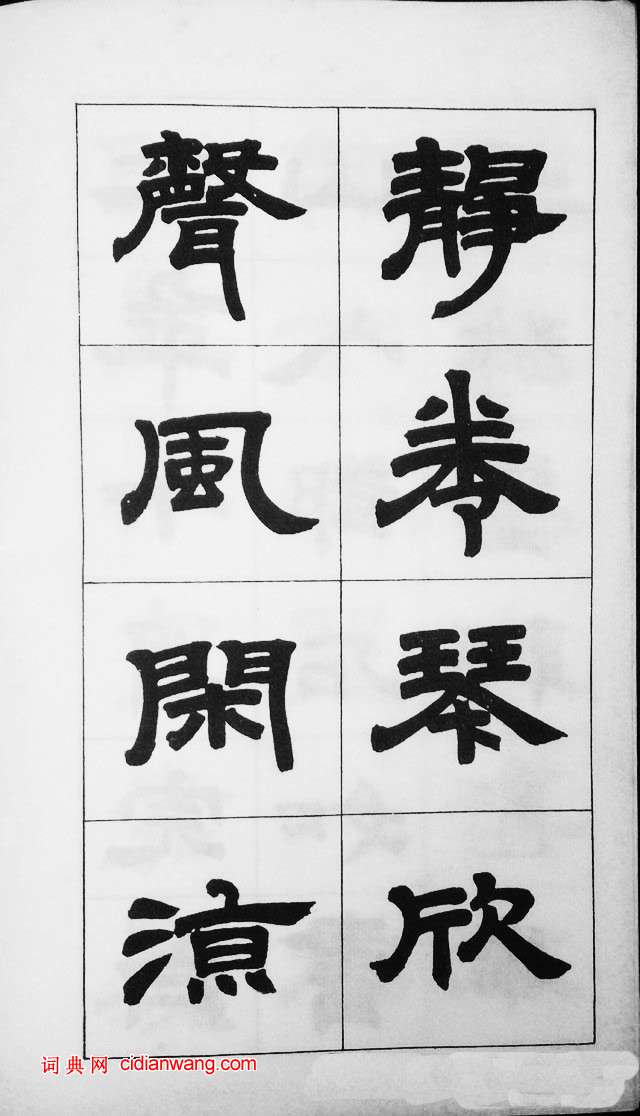 靜琴欣
聲風閑涼
词典网 cidianwang.com